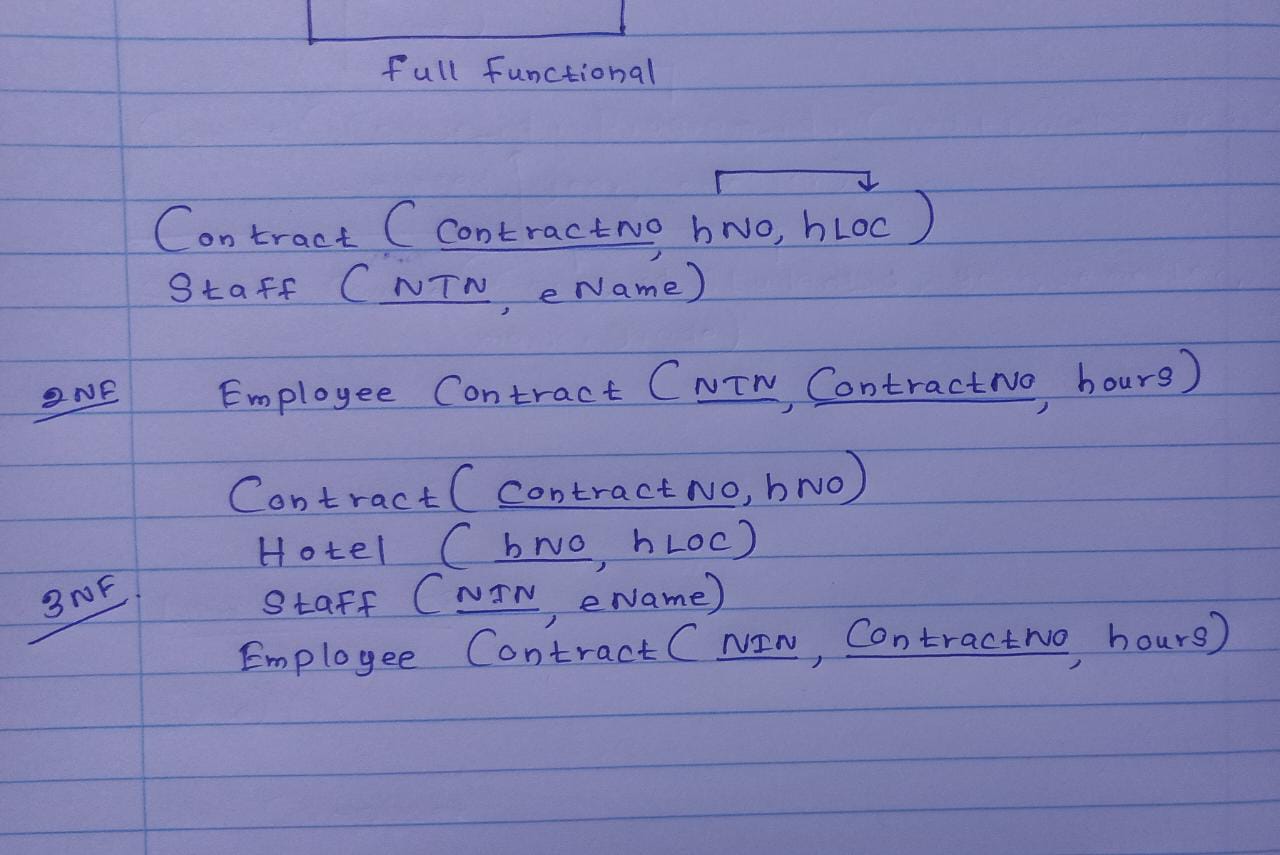 Full Functional
Contract ( ContractNO, hNO, hLOC )
Staff ( NIN, eName)
2NF Employee Contract ( NIN, ContractNo, hours)
Contract ( ContractNO, hNO)
Hotel ( hNO, hLOC)
3NF Staff ( NIN, eName)
Employee Contract ( NIN, ContractNo, hours)